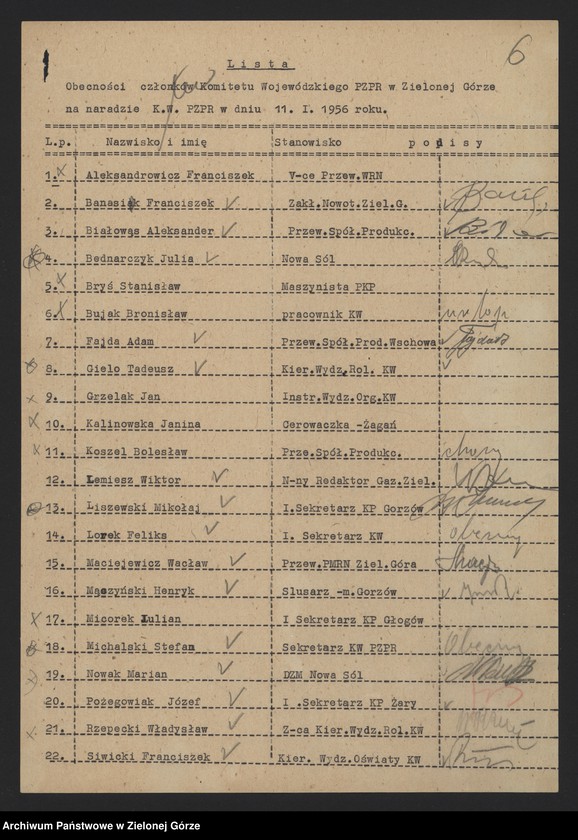 6
Lista
Obecności członków Komitetu Wojewódzkiego PZPR w Zielonej Górze
na naradzie K.W. PZPR w dniu 11. I. 1956 roku.
L.p. Nazwisko i imię Stanowisko podpisy
1. x Aleksandrowicz Franciszek V-ce Przew.WRN
2. Banasiak Franciszek ✓ Zakł.Nowot.Ziel.G.
3. Białowąs Aleksander ✓ Przew.Spół.Produkc.
4. Bednarczyk Julia ✓ Nowa Sól
5. x Bryś Stanisław Maszynista PKP
6. x Bujak Bronisław pracownik KW urlop
7. Fajda Adam ✓ Przew.Spół.Prod.Wschowa ✓ Fajda
8. Gielo Tadeusz ✓ Kier.Wydz.Rol. KW ✓
x 9. Grzelak Jan Instr.Wydz.Org.KW
x 10. Kalinowska Janina Cerowaczka -Żagań
x 11. Koszel Bolesław Prze.Spół.Produkc. chory
12. Lemiesz Wiktor ✓ N-ny Redaktor Gaz.Ziel.
13. Liszewski Mikołaj ✓ I.Sekretarz KP Gorzów
14. Lorek Feliks ✓ I. Sekretarz KW obecny
15. Maciejewicz Wacław ✓ Przew.PMRN Ziel.Góra
16. Mączyński Henryk ✓ Slusarz -m.Gorzów ✓
x 17. Micorek Iulian I Sekretarz KP Głogów
18. Michalski Stefan ✓ Sekretarz KW PZPR Obecny
19. Nowak Marian ✓ DZM Nowa Sól
20. Pozegowiak Józef ✓ I .Sekretarz KP Żary ✓
x 21. Rzepecki Władysław ✓ Z-ca Kier.Wydz.Rol.KW
22. Siwicki Franciszek ✓ Kier. Wydz.Oświaty KW ✓
Archiwum Państwowe w Zielonej Górze